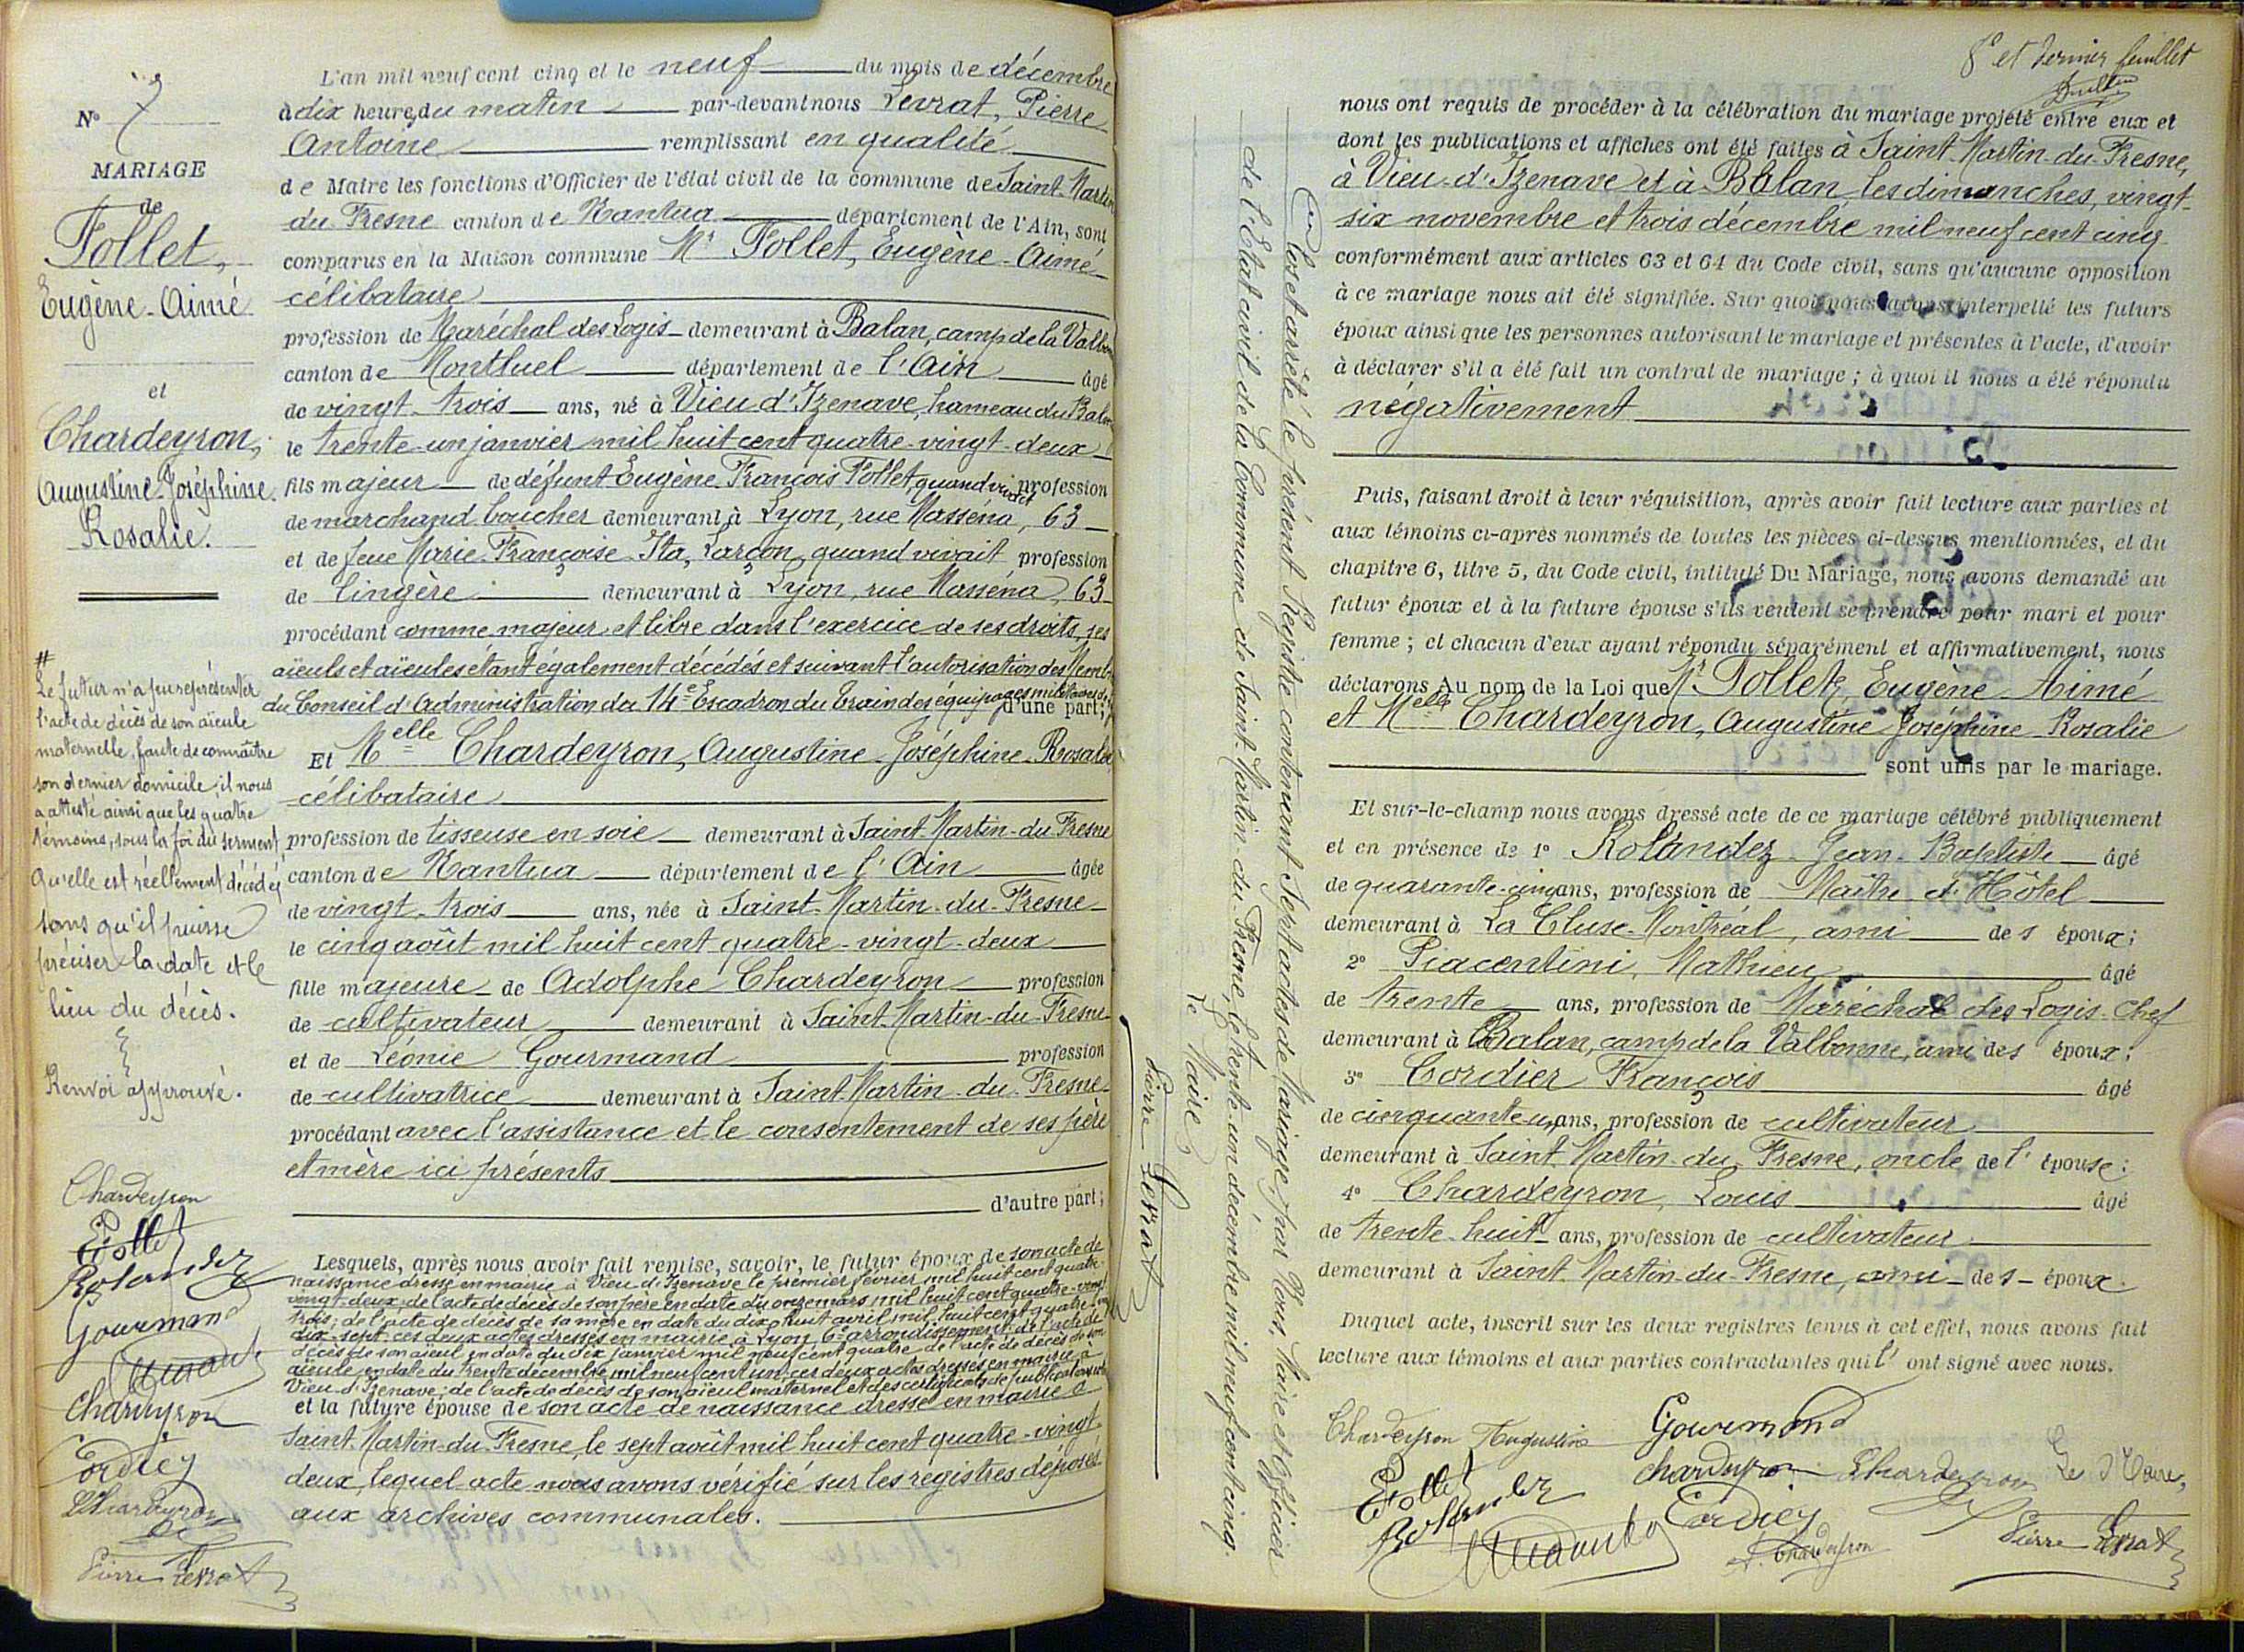 N° 7
MARIAGE
de
Follet,
Eugène-Aimé
et
Chardeyron,
Augustine-Joséphine
Rosalie.
#
Le futur n'a pu représenter
l'acte de décès de son aïeule
maternelle, faute de connaître
son dernier domicile; il nous
a attesté ainsi que les quatre
témoins, sous la foi du serment
qu'elle est réellement décédée
sans qu'il puisse
préciser la date et le
lieu du décès.
Renvoi approuvé.
Chardeyron
Follet
Rolandez
Gourmand
Chardeyron
Cordier
Chardeyron
Pierre Levrat
L'an mil neuf cent cinq et le neuf du mois de décembre
à dix heures du matin par-devant nous Levrat, Pierre
Antoine remplissant en qualité
de Maire les fonctions d'Officier de l'état civil de la commune de Saint-Martin
du Fresne canton de Nantua département de l'Ain, sont
comparus en la Maison commune Mr Follet, Eugène-Aimé
célibataire
profession de Maréchal des Logis demeurant à Balan, camp de la Valbonne
canton de Montluel département de l'Ain âgé
de vingt-trois ans, né à Vieu d'Izenave, hameau du Balmay
le trente-un janvier mil huit cent quatre-vingt-deux
fils majeur de défunt Eugène-François Follet, quand vivait profession
de marchand boucher demeurant à Lyon, rue Masséna, 63
et de feue Marie-Françoise Ita, Larçon, quand vivait profession
de lingère demeurant à Lyon, rue Masséna, 63
procédant comme majeur et libre dans l'exercice de ses droits, ses
aïeuls et aïeules étant également décédés et suivant l'autorisation des Membres
du Conseil d'Administration du 14e Escadron du train des équipages militaires d'une part;
Et Melle Chardeyron, Augustine-Joséphine-Rosalie
célibataire
profession de tisseuse en soie demeurant à Saint-Martin-du-Fresne
canton de Nantua département de l'Ain âgée
de vingt-trois ans, née à Saint-Martin-du-Fresne
le cinq août mil huit cent quatre-vingt-deux
fille majeure de Adolphe Chardeyron profession
de cultivateur demeurant à Saint-Martin-du-Fresne
et de Léonie Gourmand profession
de cultivatrice demeurant à Saint-Martin-du-Fresne
procédant avec l'assistance et le consentement de ses père
et mère ici présents
d'autre part;
Lesquels, après nous avoir fait remise, savoir, le futur époux de son acte de
naissance dressé en mairie à Vieu-d'Izenave le premier février mil huit cent quatre-
vingt-deux; de l'acte de décès de son père en date du onze mars mil huit cent quatre-vingt
trois; de l'acte de décès de sa mère en date du dix-huit avril mil huit cent quatre-vingt
dix-sept ces deux actes dressés en mairie à Lyon, 6e arrondissement; de l'acte de
décès de son aïeul en date du dix janvier mil neuf cent quatre de l'acte de décès de son
aïeule en date du trente décembre mil neuf cent un, ces deux actes dressés en mairie à
Vieu-d'Izenave; de l'acte de décès de son aïeul maternel et des certificats de publications
et la future épouse de son acte de naissance dressé en mairie à
Saint-Martin-du-Fresne, le sept août mil huit cent quatre-vingt
deux, lequel acte nous avons vérifié sur les registres déposés
aux archives communales.
8e et dernier feuillet
nous ont requis de procéder à la célébration du mariage projeté entre eux et
dont les publications et affiches ont été faites à Saint-Martin-du-Fresne,
à Vieu-d'Izenave et à Balan, les dimanches, vingt-
six novembre et trois décembre mil neuf cent cinq
conformément aux articles 63 et 64 du Code civil, sans qu'aucune opposition
à ce mariage nous ait été signifiée. Sur quoi nous avons interpellé les futurs
époux ainsi que les personnes autorisant le mariage et présentes à l'acte, d'avoir
à déclarer s'il a été fait un contrat de mariage; à quoi il nous a été répondu
négativement
Puis, faisant droit à leur réquisition, après avoir fait lecture aux parties et
aux témoins ci-après nommés de toutes les pièces ci-dessus mentionnées, et du
chapitre 6, titre 5, du Code civil, intitulé Du Mariage, nous avons demandé au
futur époux et à la future épouse s'ils veulent se prendre pour mari et pour
femme; et chacun d'eux ayant répondu séparément et affirmativement, nous
déclarons Au nom de la Loi que Mr Follet, Eugène-Aimé
et Melle Chardeyron, Augustine-Joséphine-Rosalie
sont unis par le mariage.
Et sur-le-champ nous avons dressé acte de ce mariage célébré publiquement
et en présence de 1° Rolandez Jean-Baptiste âgé
de quarante-cinq ans, profession de Maître d'Hôtel
demeurant à La Cluse-Montréal, ami des époux;
2° Piacentini, Mathieu âgé
de trente ans, profession de Maréchal des Logis-chef
demeurant à Balan, camp de la Valbonne, ami des époux;
3° Cordier François âgé
de cinquante-un ans, profession de cultivateur
demeurant à Saint-Martin-du-Fresne, oncle de l'épouse;
4° Chardeyron, Louis âgé
de trente-huit ans, profession de cultivateur
demeurant à Saint-Martin-du-Fresne, ami des époux.
Duquel acte, inscrit sur les deux registres tenus à cet effet, nous avons fait
lecture aux témoins et aux parties contractantes qui l' ont signé avec nous.
Chardeyron Augustine
Gourmand
Follet
Chardeyron
Chardeyron
Le Maire,
Rolandez
Cordier
L. Chardeyron
Pierre Levrat
Clos et arrêté le présent Registre contenant Sept actes de Mariage, par Nous, Maire et Officier
de l'Etat civil de la Commune de Saint-Martin-du-Fresne, le trente-un décembre mil neuf cent cinq.
Le Maire,
Pierre Levrat